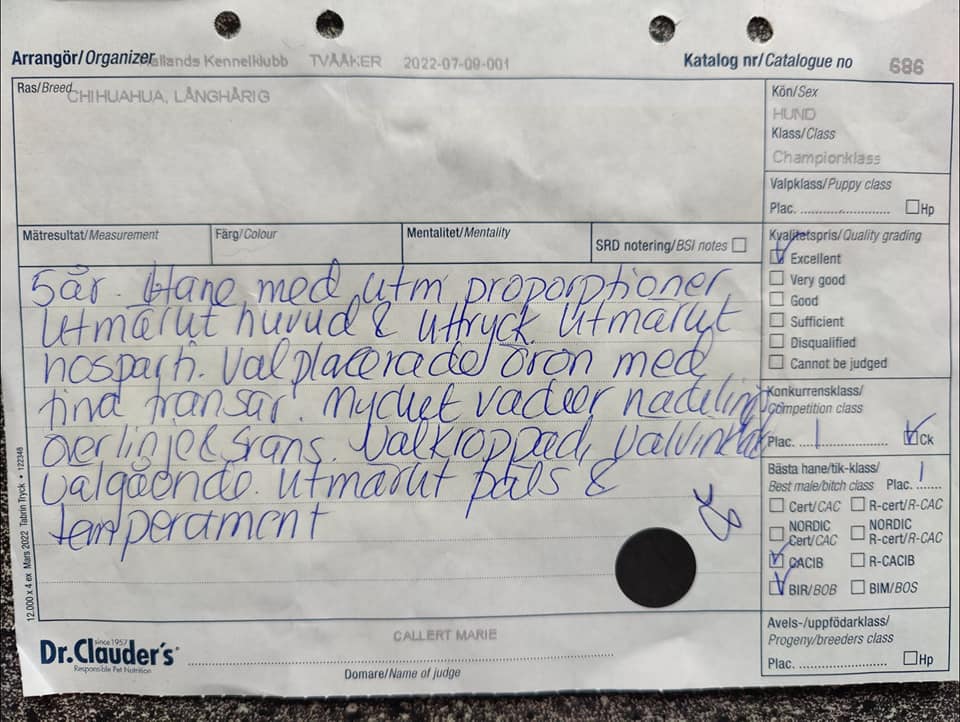 Arrangör/Organizer Hallands Kennelklubb TVÅÅKER 2022-07-09-001
Katalog nr/Catalogue no 686
Ras/Breed CHIHUAHUA, LÅNGHÅRIG
Kön/Sex
HUND
Klass/Class
Championklass
Valpklass/Puppy class
Plac. Hp
Mätresultat/Measurement Färg/Colour Mentalitet/Mentality SRD notering/BSI notes
Kvalitetspris/Quality grading
Excellent
Very good
Good
Sufficient
Disqualified
Cannot be judged
5 år. Hane med utm proporptioner
utmärkt huvud & uttryck. Utmärkt
nosparti. Välplacerade öron med
fina fransar. Mycket vacker
överlinje & svans. Välkroppad, välvinklad
välgående. Utmärkt päls &
temperament
Konkurrensklass/
Competition class
Plac. 1 Ck
Bästa hane/tik-klass/
Best male/bitch class Plac. 1
Cert/CAC R-cert/R-CAC
NORDIC Cert/CAC NORDIC R-cert/R-CAC
CACIB R-CACIB
BIR/BOB BIM/BOS
Avels-/uppfödarklass/
Progeny/breeders class
Plac. Hp
12.000 x 4 ex Mars 2022 Tabrin Tryck • 122348
since 1957
Dr.Clauder's
Responsible Pet Nutrition
CALLERT MARIE
Domare/Name of judge